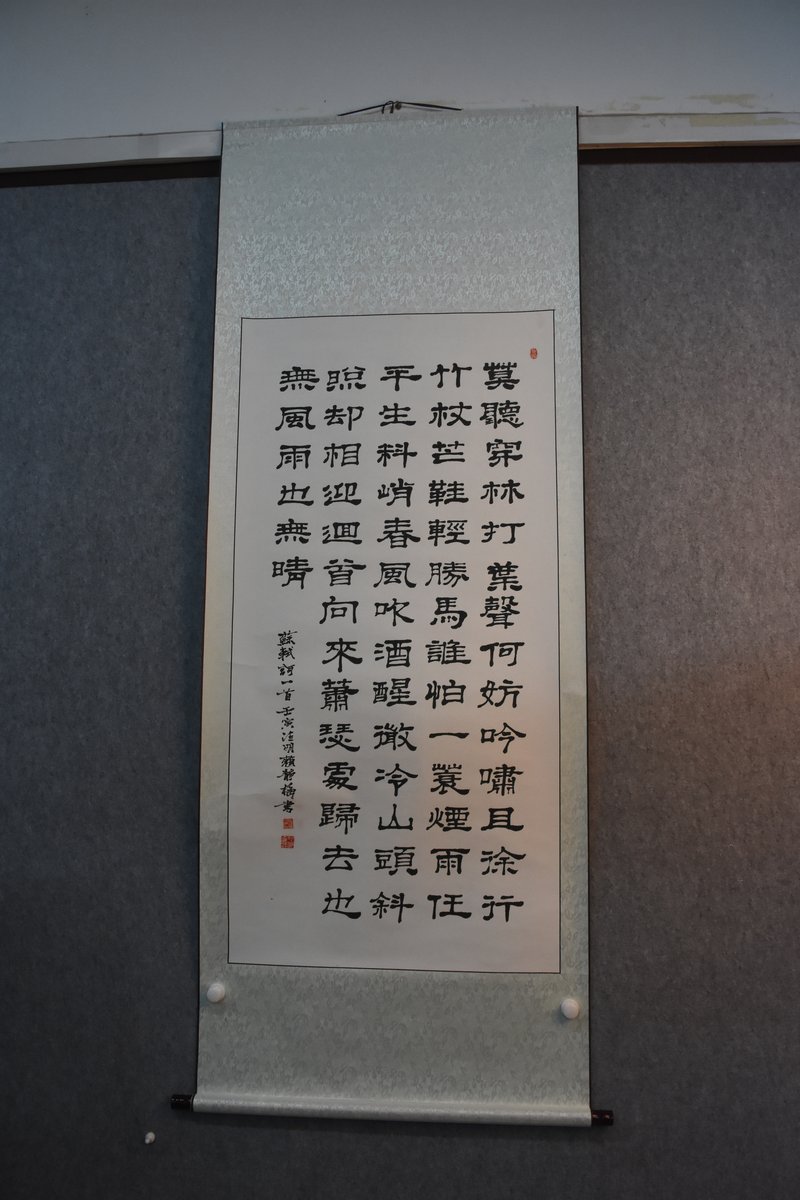 莫聽穿林打葉聲何妨吟嘯且徐行
竹杖芒鞋輕勝馬誰怕一蓑煙雨任
平生料峭春風吹酒醒微冷山頭斜
照却相迎迴首向來蕭瑟處歸去也
無風雨也無晴
蘇軾詞一首壬寅清明賴静梅書